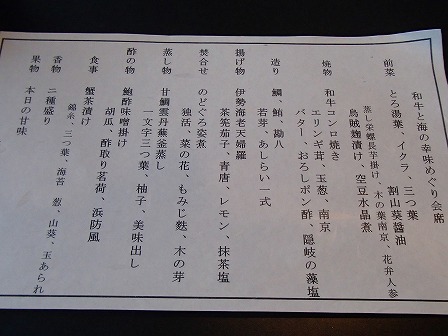 和牛と海の幸味めぐり会席
前菜 とろ湯葉、イクラ、三つ葉
割山葵醤油
蒸し栄螺長芋掛け、木の葉南京、花弁人参
烏賊麹漬け、空豆水晶煮
造り 鯛、鮪、勘八
若芽、あしらい一式
焼物 和牛コンロ焼き
エリンギ茸、玉葱、南京
バター、おろしポン酢、隠岐の藻塩
揚げ物 伊勢海老天婦羅
茶筅茄子、青唐、レモン、抹茶塩
焚合せ のどぐろ姿煮
独活、菜の花、もみじ麩、木の芽
蒸し物 甘鯛雲丹蕪釜蒸し
一文字三つ葉、柚子、美味出し
酢の物 鮑酢味噌掛け
胡瓜、酢取り茗荷、浜防風
食事 蟹茶漬け
錦糸、三つ葉、海苔 葱、山葵、玉あられ
香物 二種盛り
果物 本日の甘味